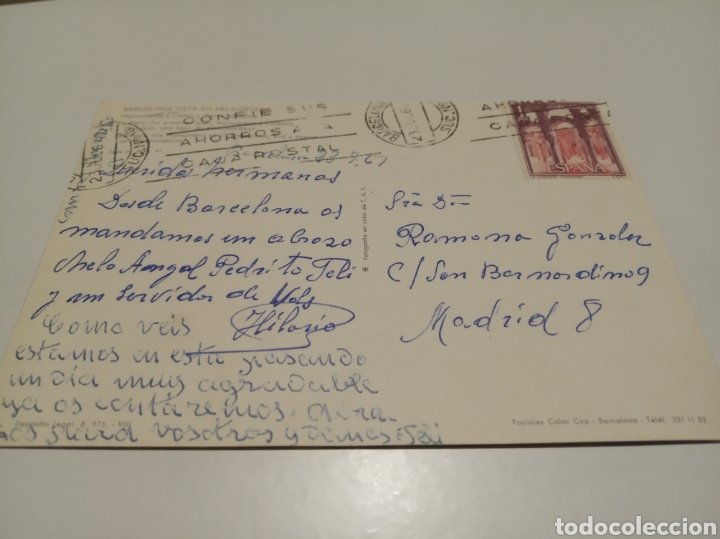 BARCELONA VISTA EN HELICOPTERO
CONFIE SUS
AHORROS A LA
CAJA POSTAL
BARCELONA
SUC.
AHORROS
CAJA
ESPAÑA
Queridas hermanas
Desde Barcelona os
mandamos un abrazo
Chelo Angel Pedrito Feli
y un servidor de Vds
Hilario
Como veis
estamos en esta pasando
un dia muy agradable
ya os contaremos.
para vosotros y demas
Sra Dña
Ramona Gonzalez
C/ San Bernardino 9
Madrid 8
* Fotografía en color de
Depósito legal B. 976 - VIII
Postales Color Cyp - Barcelona - Teléf. 221.11.52
todocoleccion